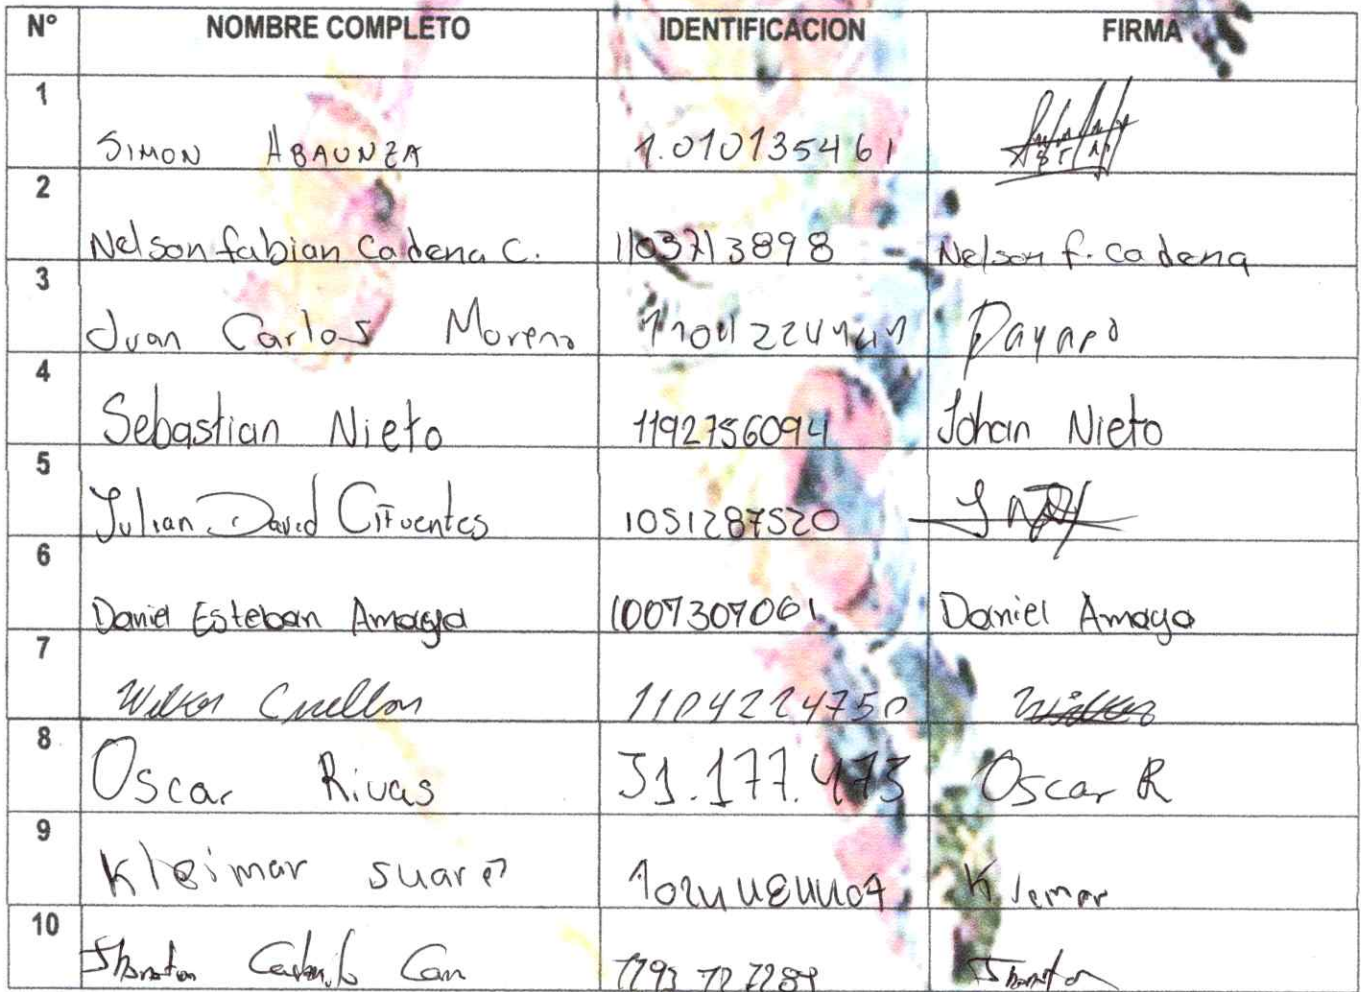 Nº NOMBRE COMPLETO IDENTIFICACION FIRMA
1 SIMON ABAUNZA 1.010135461
2 Nelson fabian Cadena C. 1103713898 Nelson f. cadena
3 Juan Carlos Moreno
4 Sebastian Nieto 1192756094 Johan Nieto
5 Julian David Cifuentes 1051287520
6 Daniel Esteban Amaya 1007307061 Daniel Amaya
7 Wilker Cuellar 1104224750 Wilker
8 Oscar Rivas 31.177.473 Oscar R
9 Kleimar suarez 1024484407 Klemar
10